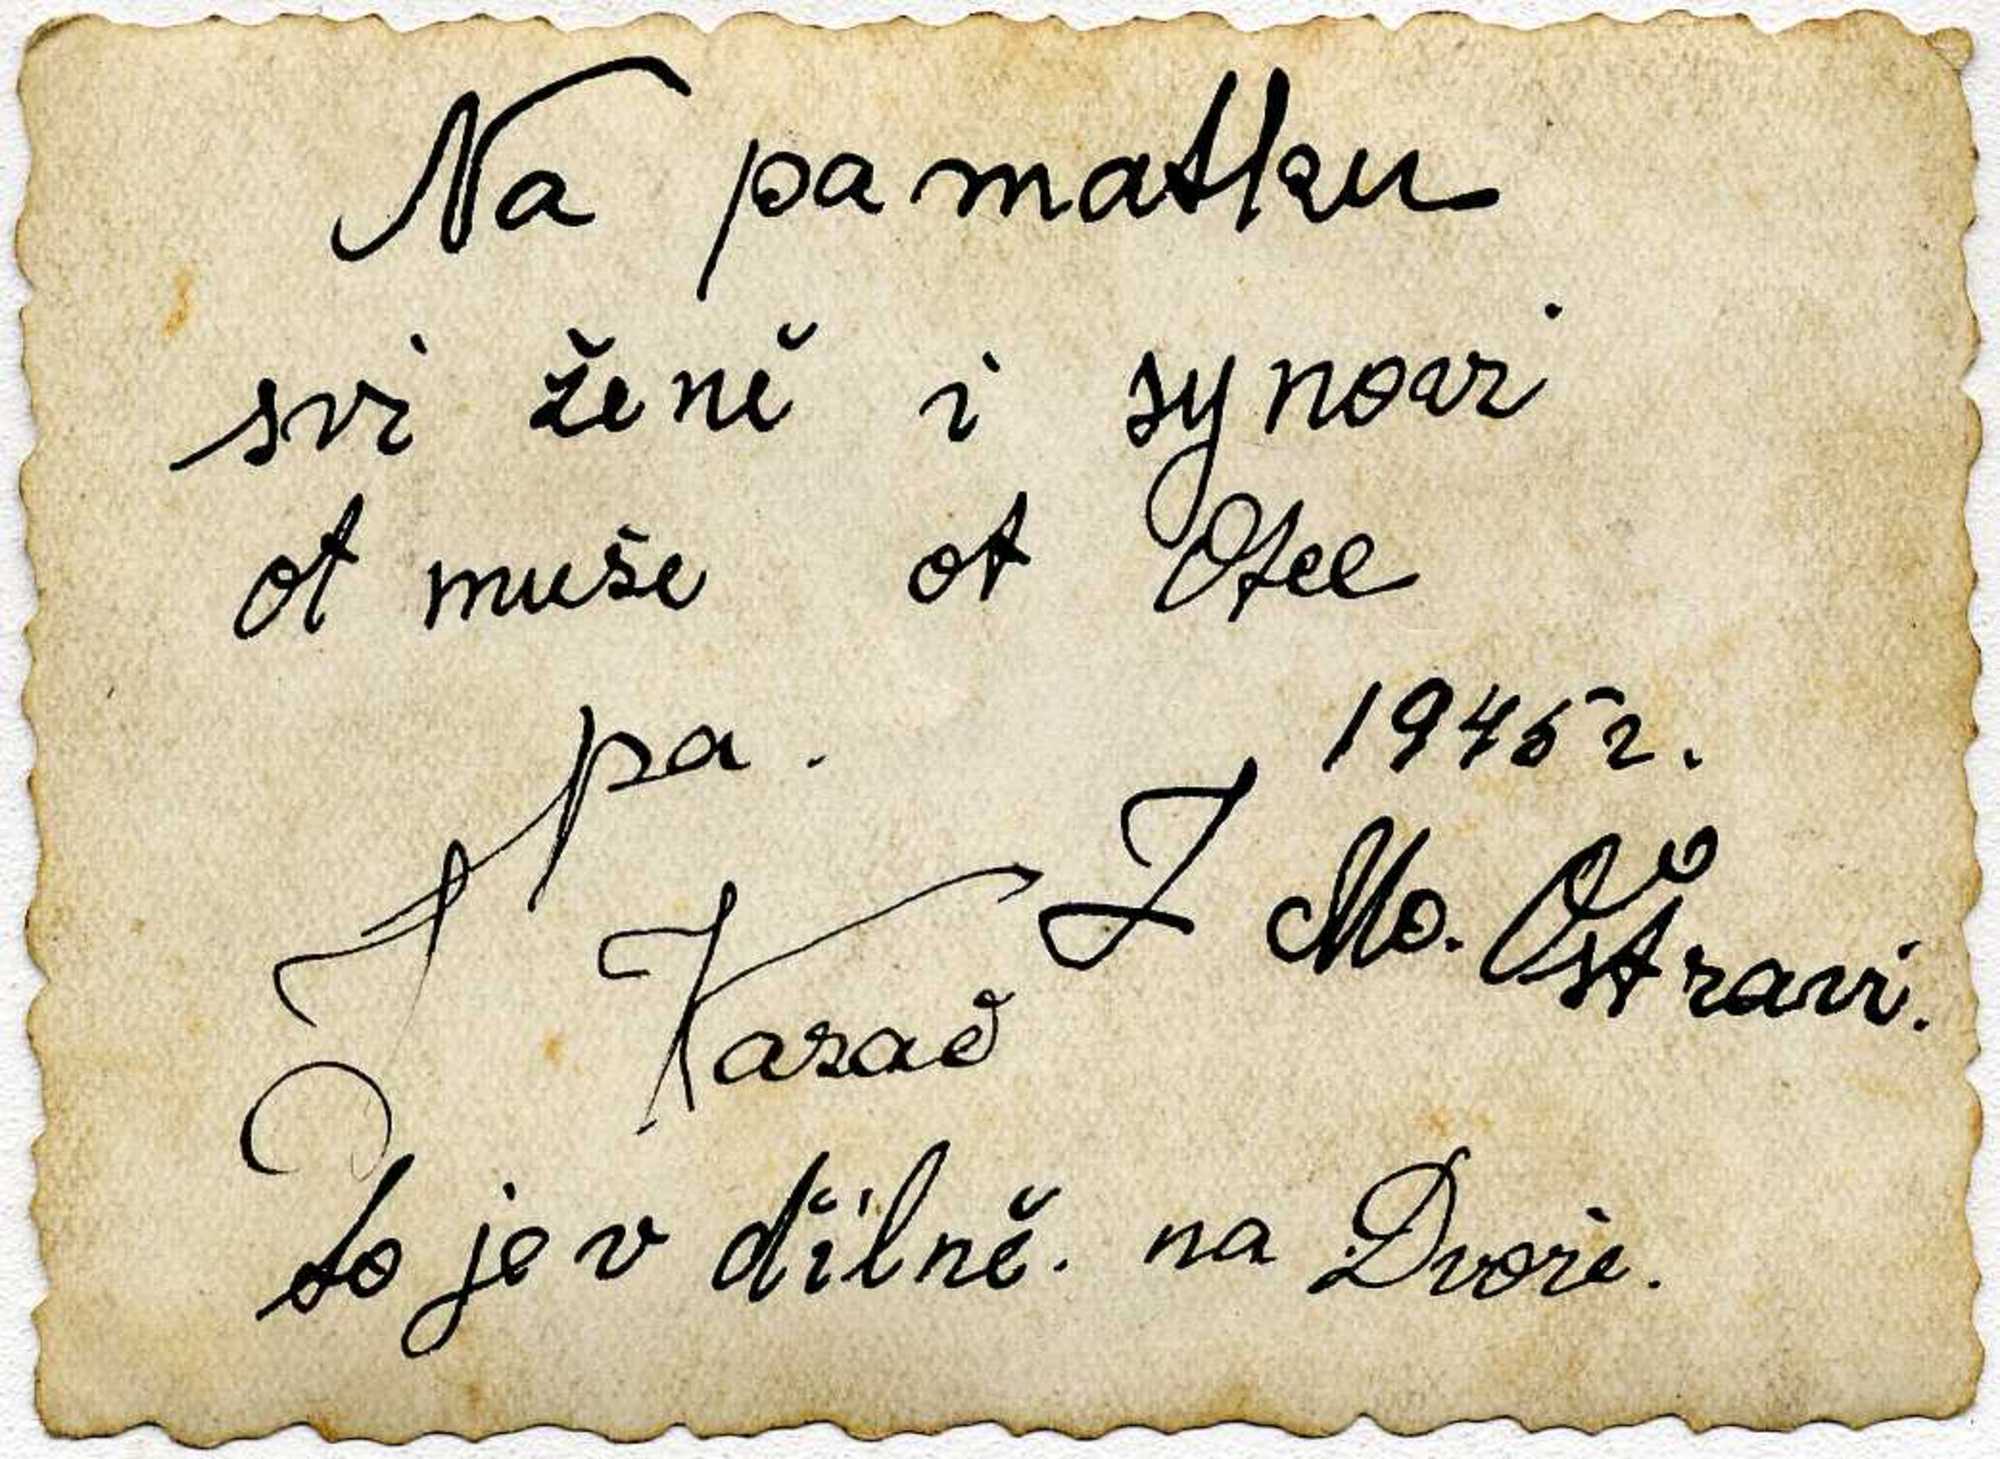 Na pamatku
svi ženě i synovi
ot muše ot Otce
pa. 1945 г.
Z Mo. Ostravi.
to je v dílně. na Dvoře.